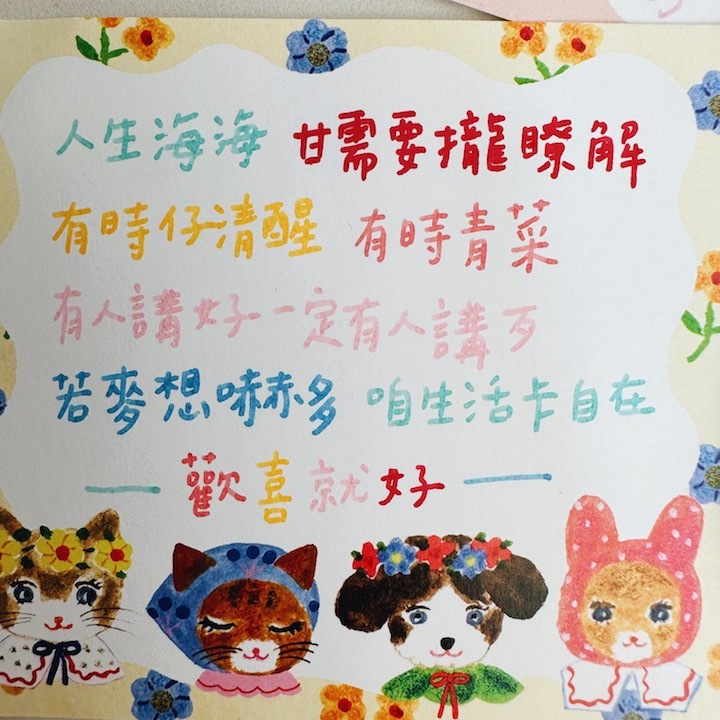 人生海海 甘需要攏瞭解
有時仔清醒 有時青菜
有人講好一定有人講歹
若麥想嚇赫多 咱生活卡自在
歡喜就好